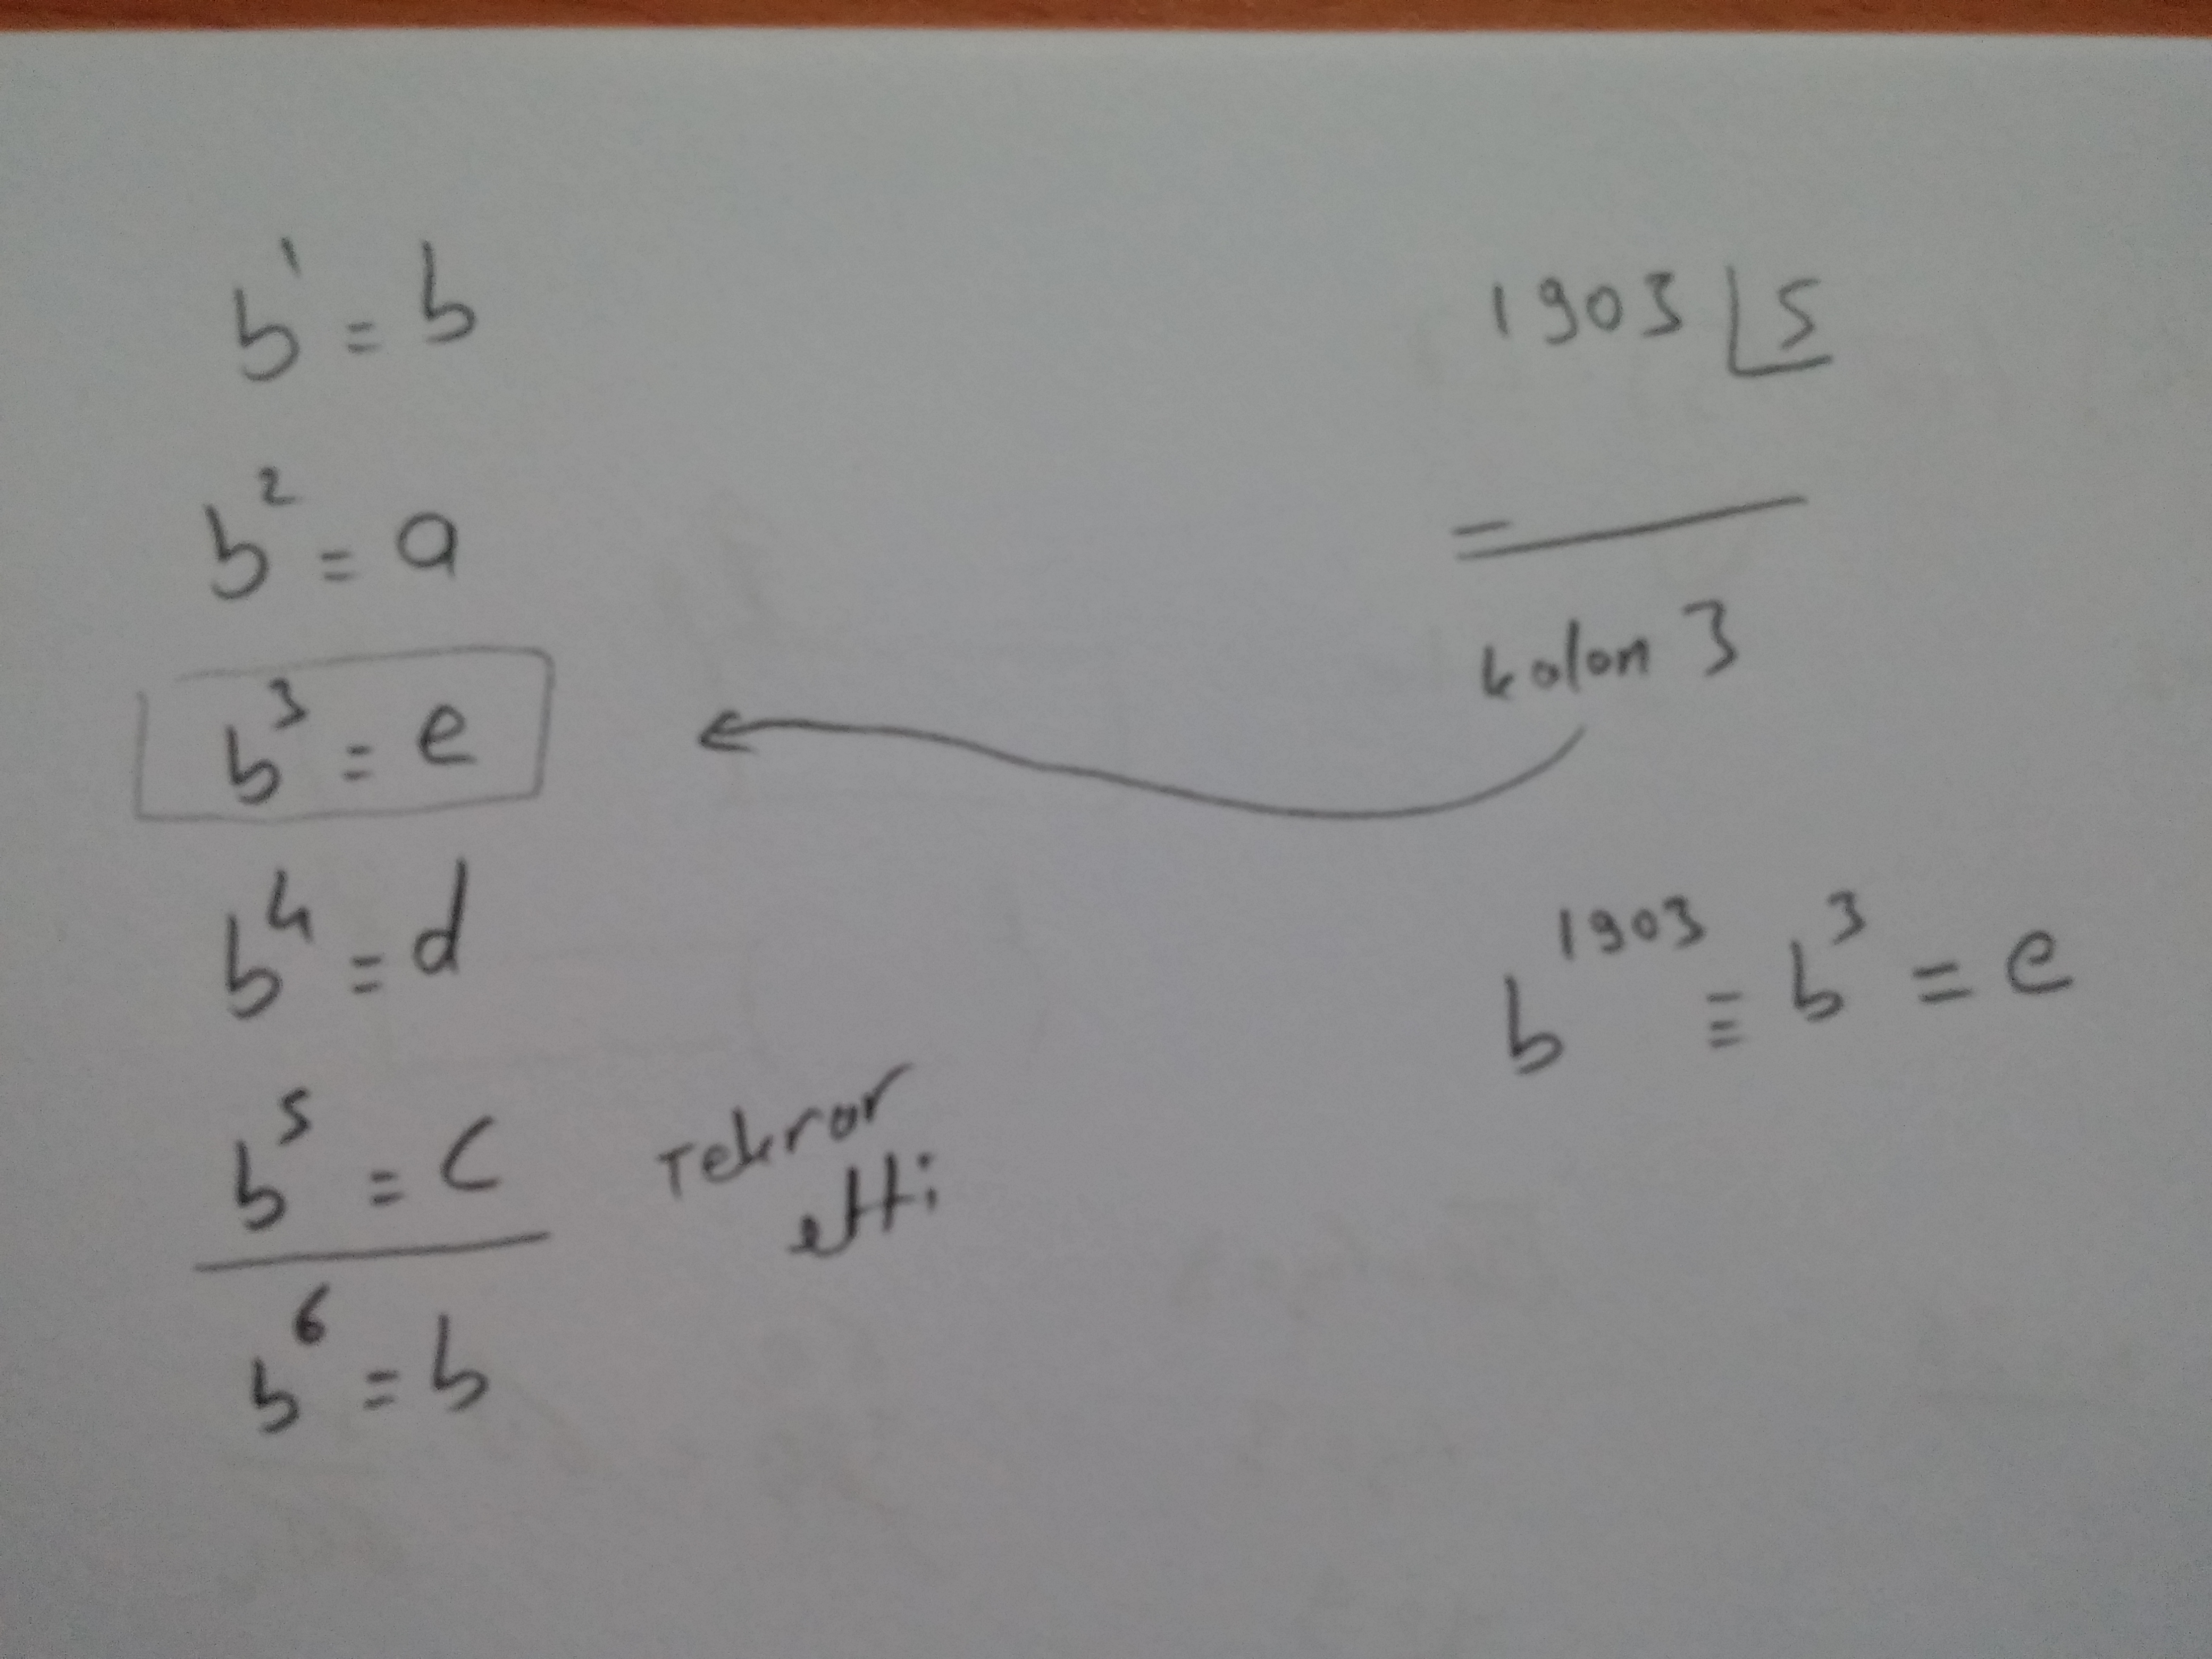 b¹ = b
b² = a
b³ = e
b⁴ = d
b⁵ = c
Tekrar
etti
b⁶ = b
1903 | 5
kalan 3
b¹⁹⁰³ ≡ b³ = e